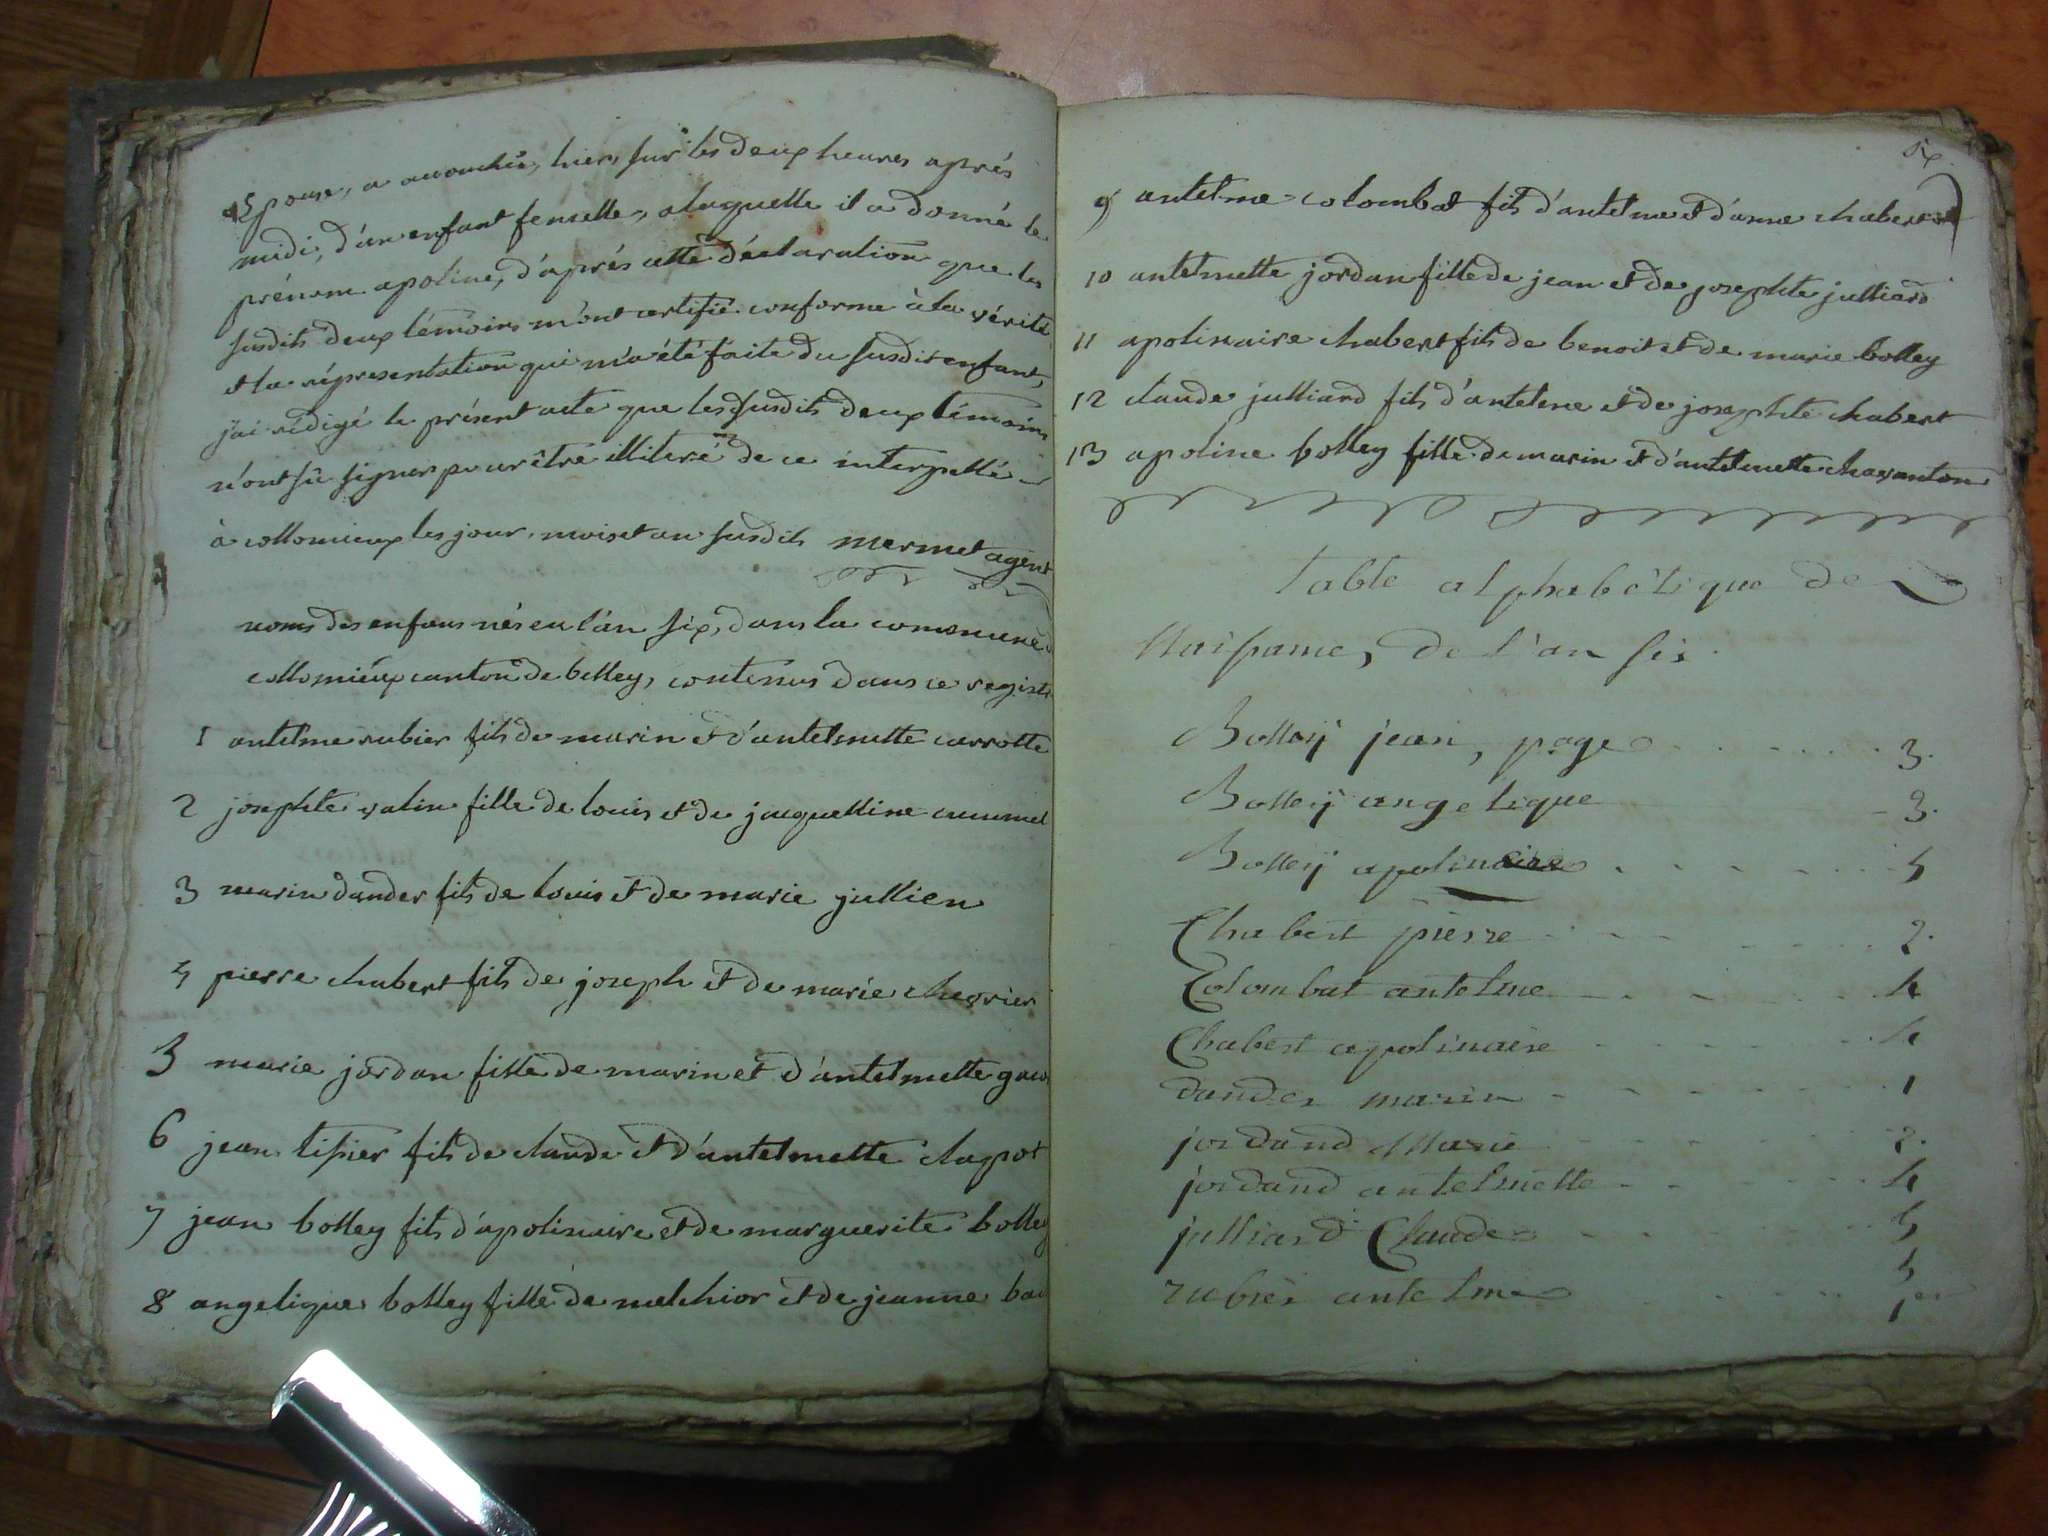 Epouse, a accouchée, hier, sur les deux heures aprés
midi, d'un enfant femelle, alaquelle il a donné le
prénom apoline, d'aprés cette déclaration que les
susdits deux témoins m'ont certifié conforme à la vérité
et la réprésentation qui m'a été faite du susdit enfant,
j'ai rédigé le présent acte que les susdits deux témoins
n'ont sû signer pour être illiteré de ce interpellé
à collomieux les jour, mois et an susdits mermet agent
noms des enfans nés en l'an six, dans la commune
collomieux canton de belley, contenus dans ce regist
1 antelme rubier fils de marin et d'antelmette carrotte
2 josephte valin fille de louis et de jacquelline
3 marin dander fils de louis et de marie jullien
4 pierre chabert fils de joseph et de marie chevrier
5 marie jordan fille de marin et d'antelmette
6 jean tissier fils de claude et d'antelmette clapot
7 jean bolley fils d'apolinaire et de marguerite bolley
8 angelique bolley fille de melchior et de jeanne
six
9 antelme colombat fils d'antelme et d'anne chabert
10 antelmette jordan fille de jean et de josephte julliard
11 apolinaire chabert fils de benoit et de marie bolley
12 claude julliard fils d'antelme et de josephte chabert
13 apoline bolley fille de marin et d'antelmette chavanton
table alphabétique de
Naissance, de l'an six
Bolleÿ jean, page 3.
Bolleÿ angelique 3.
Bolleÿ apolinaire 5
Chabert pierre 2.
Colombat antelme 4
Chabert apolinaire 4
dander marin 1
jordand Marie 2.
jordand antelmette 4
julliard Claude 5
5
rubier antelme 1er